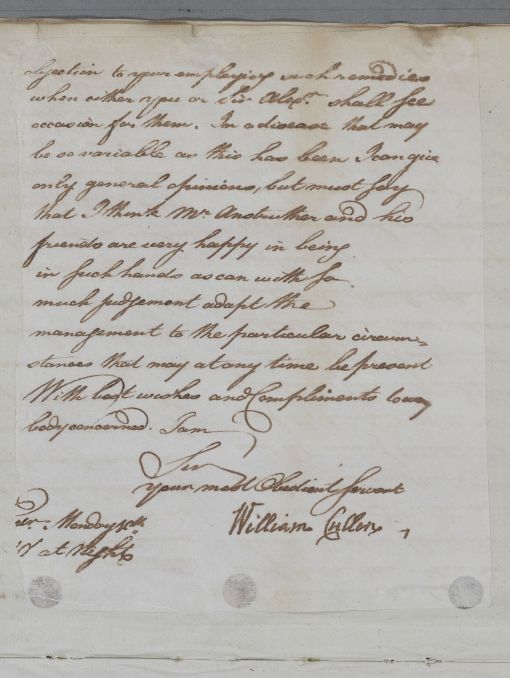 objection to your employing such remedies
when either you or Sir Alexr. shall see
occasion for them. In a disease that may
be so variable as this has been I can give
only general opinions, but must say
that I think Mr Anstruther and his
friends are very happy in being
in such hands as can with so
much judgement adapt the
management to the particular circum-
stances that may at any time be present
With best wishes and Compliments to every
body concerned. I am
Sir
Your most Obedient Servant
Monday
William Cullen
at Night